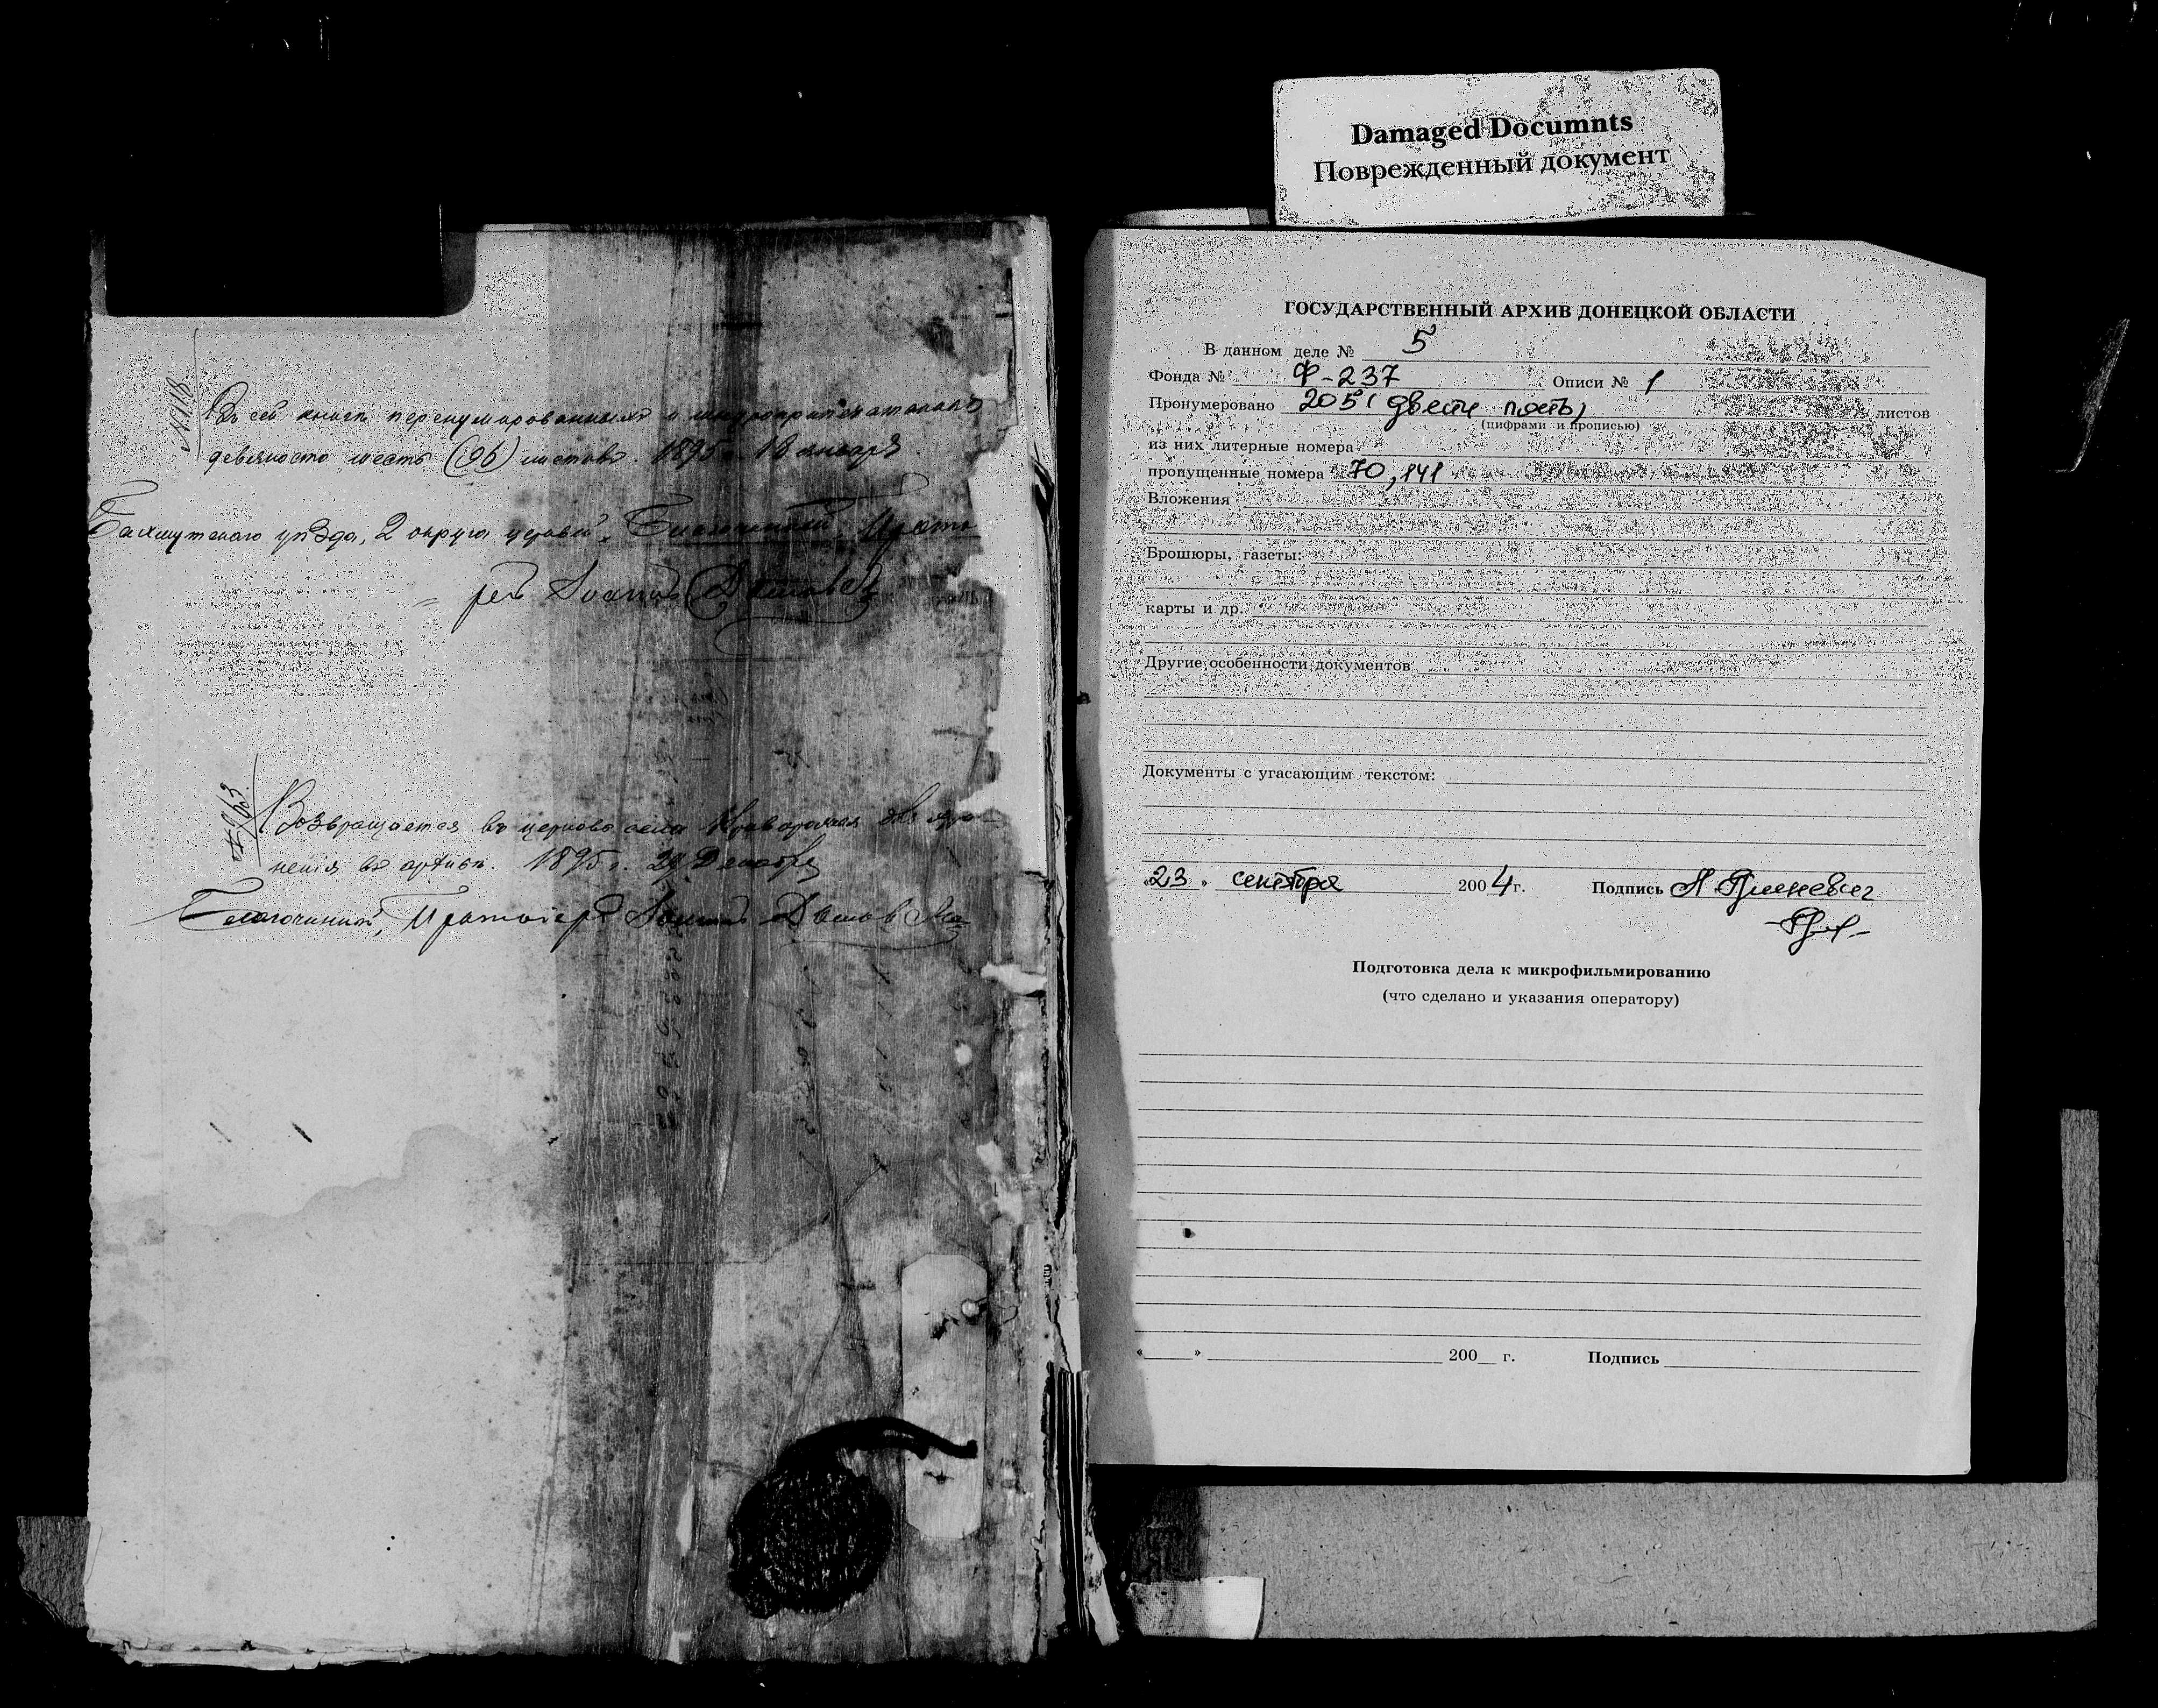 Damaged Documnts
Поврежденный документ
№ 118
Въ сей книгѣ перенумерованныхъ и
девяносто шесть (96) листовъ. 1895 г. 18 января.
Бахмутскаго уѣзда, 2 округа церквей, Благочинный, Прото-
рей Іоаннъ
№ 963.
Возвращается въ церковь села для хра-
ненія въ архивѣ. 1895 г. 29 Декабря
Благочинный, Протоіерей Іоаннъ
ГОСУДАРСТВЕННЫЙ АРХИВ ДОНЕЦКОЙ ОБЛАСТИ
В данном деле № 5
Фонда № Ф-237 Описи № 1
Пронумеровано 205 (двести пять) листов
(цифрами и прописью)
из них литерные номера
пропущенные номера 70, 141
Вложения
Брошюры, газеты:
карты и др.
Другие особенности документов
Документы с угасающим текстом:
«23» сентября 2004 г. Подпись
Подготовка дела к микрофильмированию
(что сделано и указания оператору)
« » 200 г. Подпись